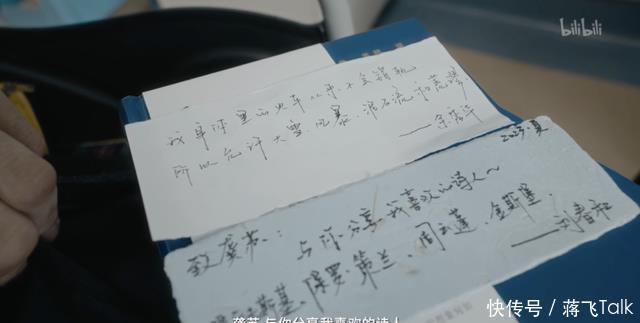 bilibili
我身体里的火车从来不会错轨
所以允许大雪，风暴，泥石流和荒谬
——余秀华
2023·夏
致龚苏：与你分享我喜欢的诗人～
斯基、阿多尼斯、策兰、周云蓬、金斯堡、
——刘春和
龚苏 与你分享我喜欢的诗人
快传号 / 蒋飞Talk